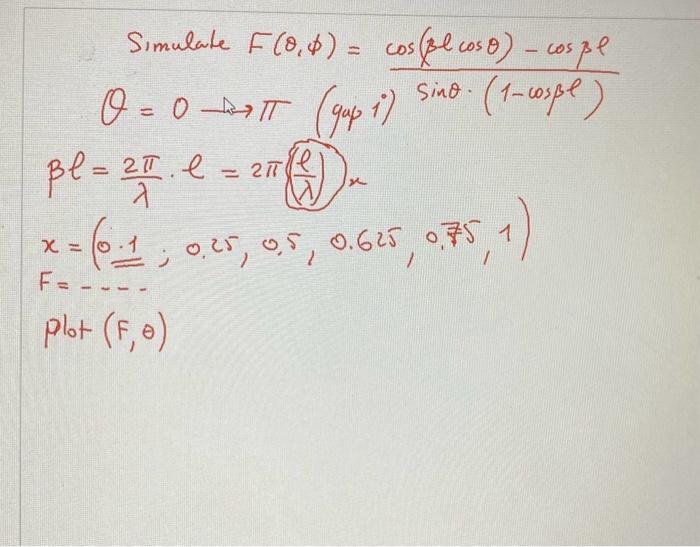 Simulate F(θ,φ) = cos(βl cosθ) - cos βl
sinθ. (1-cosβl)
θ = 0 → π (gap 1°)
βl = 2π/λ . l = 2π(l/λ) x
x = (0.1 ; 0,25, 0,5, 0.625, 0,75, 1)
F = ----
plot (F, θ)